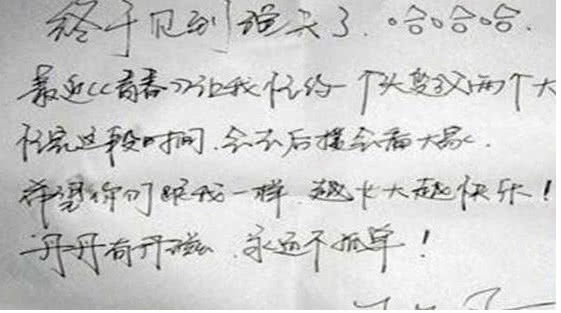 终于见到组织了.哈哈哈.
最近《青春》让我忙的一个头变两个大
忙完这段时间.会去后援会看大家.
希望你们跟我一样.越长大越快乐!
丹丹有丹磁.永远不孤单!